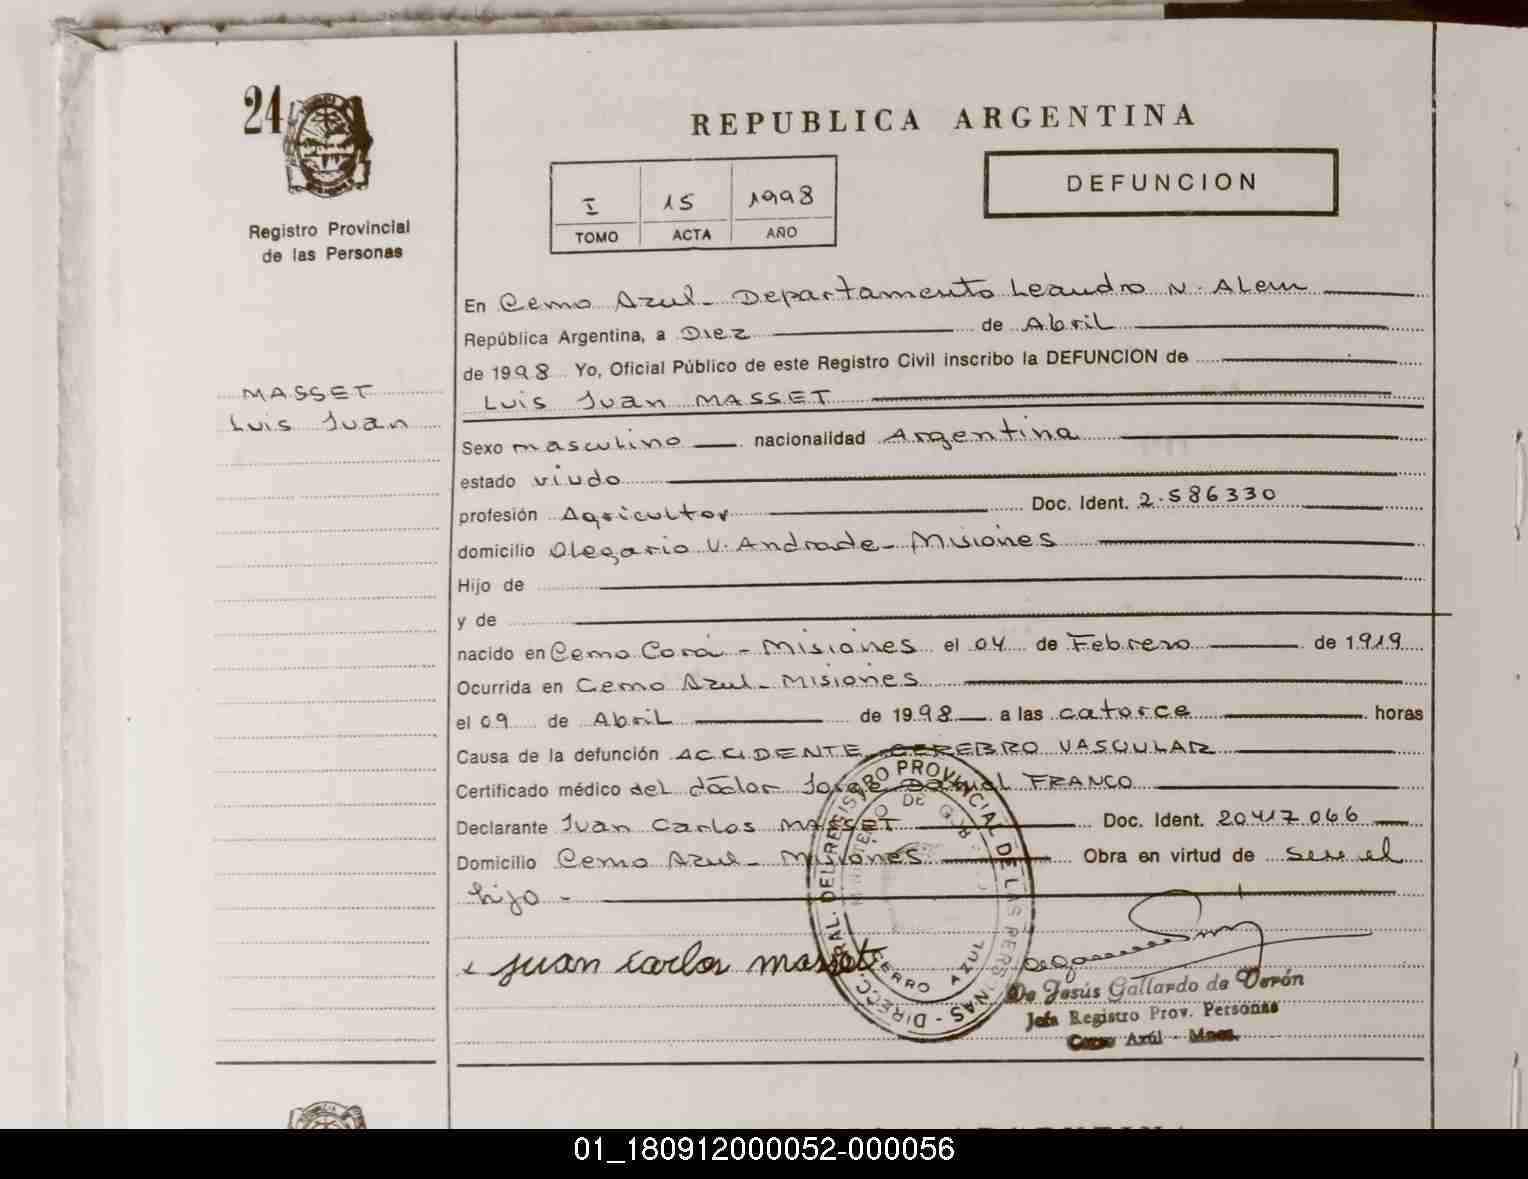 24
REPUBLICA ARGENTINA
DEFUNCION
I 15 1998
TOMO ACTA AÑO
Registro Provincial
de las Personas
En Cerro Azul - Departamento Leandro N. Alem
República Argentina, a Diez de Abril
de 1998 Yo, Oficial Público de este Registro Civil inscribo la DEFUNCION de
MASSET
Luis Juan MASSET
Luis Juan
Sexo masculino nacionalidad Argentina
estado viudo
profesión Agricultor Doc. Ident. 2.586330
domicilio Olegario V. Andrade - Misiones
Hijo de
y de
nacido en Cerro Corá - Misiones el 04 de Febrero de 1919
Ocurrida en Cerro Azul - Misiones
el 09 de Abril de 1998 a las catorce horas
Causa de la defunción ACCIDENTE CEREBRO VASCULAR
Certificado médico del doctor Jorge FRANCO
Declarante Juan Carlos MASSET Doc. Ident. 20417066
Domicilio Cerro Azul - Misiones Obra en virtud de ser el
hijo -
juan carlos masset
DIRECC. GRAL. DEL REGISTRO PROVINCIAL DE LAS PERSONAS -
MINISTERIO DE
CERRO AZUL
De Jesús Gallardo de Verón
Jefa Registro Prov. Personas
Cerro Azúl - Mnes.
01_180912000052-000056